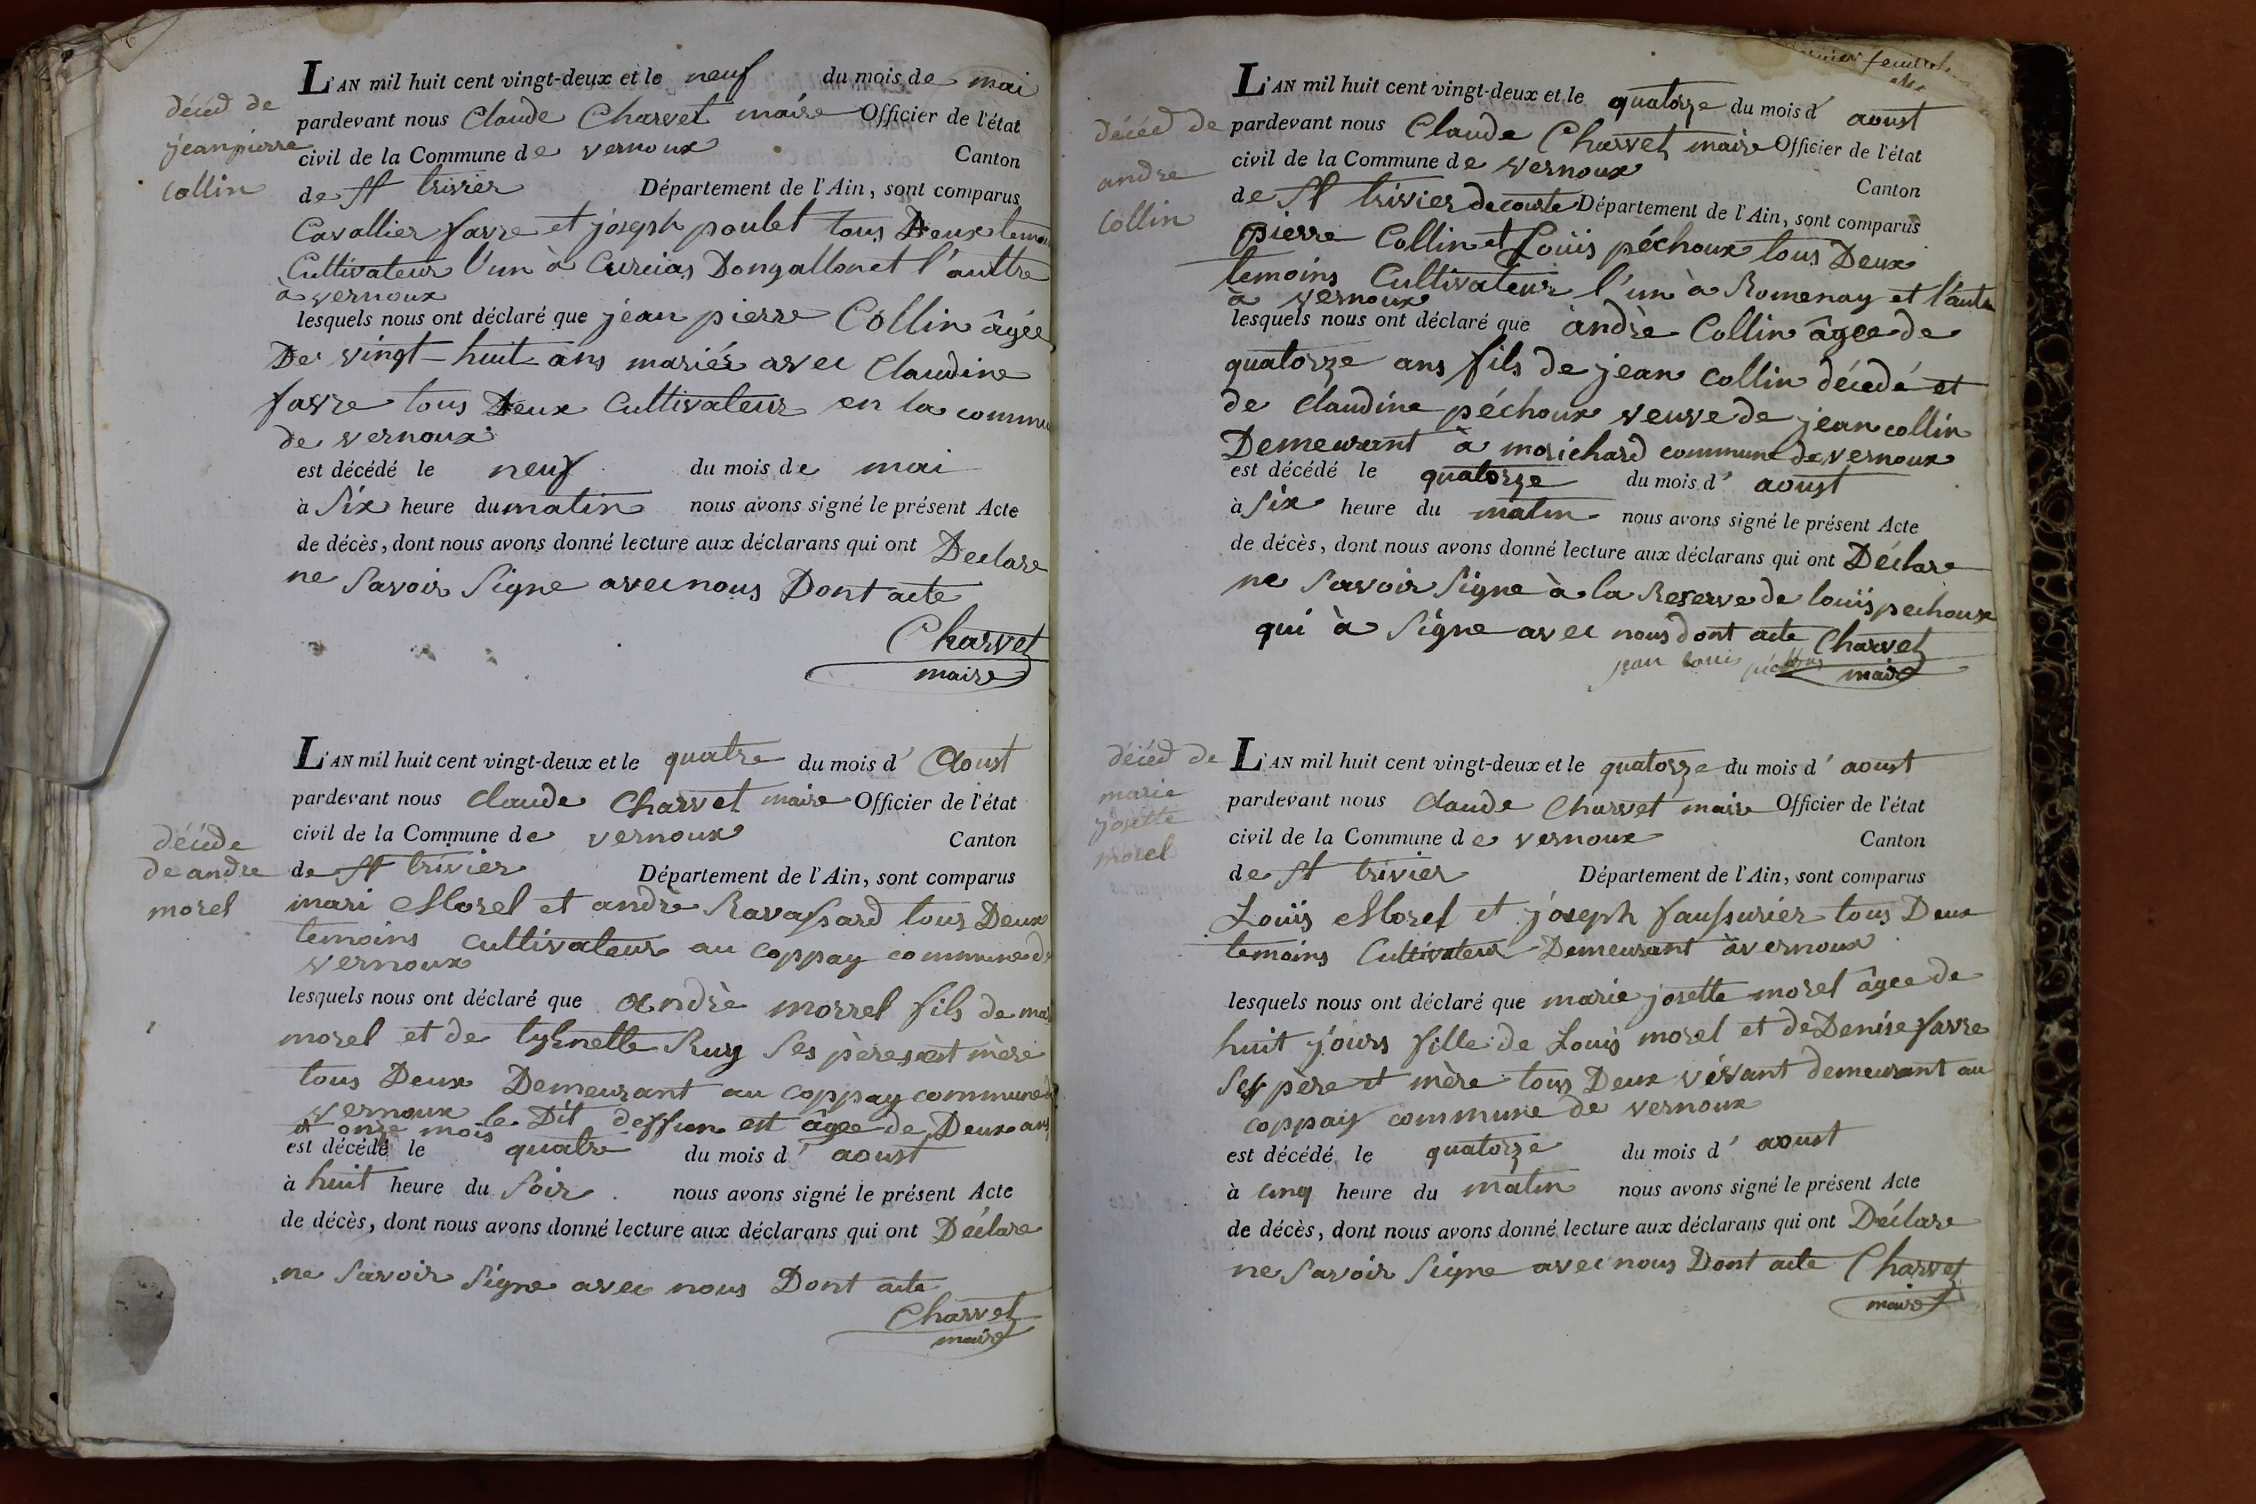 décéd de
jeanpierre
Collin
L'AN mil huit cent vingt-deux et le neuf du mois de mai
pardevant nous Claude Charvet maire Officier de l'état
civil de la Commune de vernoux Canton
de St trivier Département de l'Ain, sont comparus
Cavallier favre et joseph poulet tous Deux
Cultivateur l'un à Curcias Dongallon et l'auttre
à vernoux
lesquels nous ont déclaré que jean pierre Collin âgée
De vingt-huit ans mariés avec Claudine
favre tous Deux Cultivateur en la
de vernoux
est décédé le neuf du mois de mai
à Six heure du matin nous avons signé le présent Acte
de décès, dont nous avons donné lecture aux déclarans qui ont Declare
ne Savoir Signe avec nous Dont acte
Charvet
maire
décéde
de andre
morel
L'AN mil huit cent vingt-deux et le quatre du mois d' Aoust
pardevant nous Claude Charvet maire Officier de l'état
civil de la Commune de vernoux Canton
de St trivier Département de l'Ain, sont comparus
mari Morel et andrè Ravassard tous Deux
temoins cultivateur au coppay commune de
vernoux
lesquels nous ont déclaré que Andrè morrel fils de
morel et de Ruy Ses pères et mère
tous Deux Demeurant au coppay commune de
vernoux le Dit deffun est âgee de Deux ans
et onze mois
est décédé le quatre du mois d' aoust
à huit heure du Soir nous avons signé le présent Acte
de décès, dont nous avons donné lecture aux déclarans qui ont Déclare
ne Savoir Signe avec nous Dont acte
Charvet
maire
feuillet
décéd de
andre
Collin
L'AN mil huit cent vingt-deux et le quatorze du mois d' aoust
pardevant nous Claude Charvet maire Officier de l'état
civil de la Commune de vernoux Canton
de St trivier de courte Département de l'Ain, sont comparus
pierre Collin et Loüis péchoux tous Deux
temoins Cultivateur l'un à Romenay et l'autre
à vernoux
lesquels nous ont déclaré que andrè Collin âgee de
quatorze ans fils de jean collin décedé et
de claudine péchoux veuve de jean collin
Demeurant à morichard commune de vernoux
est décédé le quatorze du mois d' aoust
à Six heure du matin nous avons signé le présent Acte
de décès, dont nous avons donné lecture aux déclarans qui ont Déclare
ne Savoir Signe à la Reserve de louïs pechoux
qui à Signe avec nous dont acte Charvet
jean louis maire
décéd de
marie
josette
morel
L'AN mil huit cent vingt-deux et le quatorze du mois d' aoust
pardevant nous Claude Charvet maire Officier de l'état
civil de la Commune de vernoux Canton
de St trivier Département de l'Ain, sont comparus
Loüis Morel et joseph faussurier tous Deux
temoins Cultivateur Demeurant à vernoux
lesquels nous ont déclaré que marie josette morel âgee de
huit jours fille de Louis morel et de Denise favre
Ses père et mère tous Deux vivant demeurant au
coppay commune de vernoux
est décédé le quatorze du mois d' aoust
à cinq heure du matin nous avons signé le présent Acte
de décès, dont nous avons donné lecture aux déclarans qui ont Déclare
ne Savoir Signe avec nous Dont acte Charvet
maire